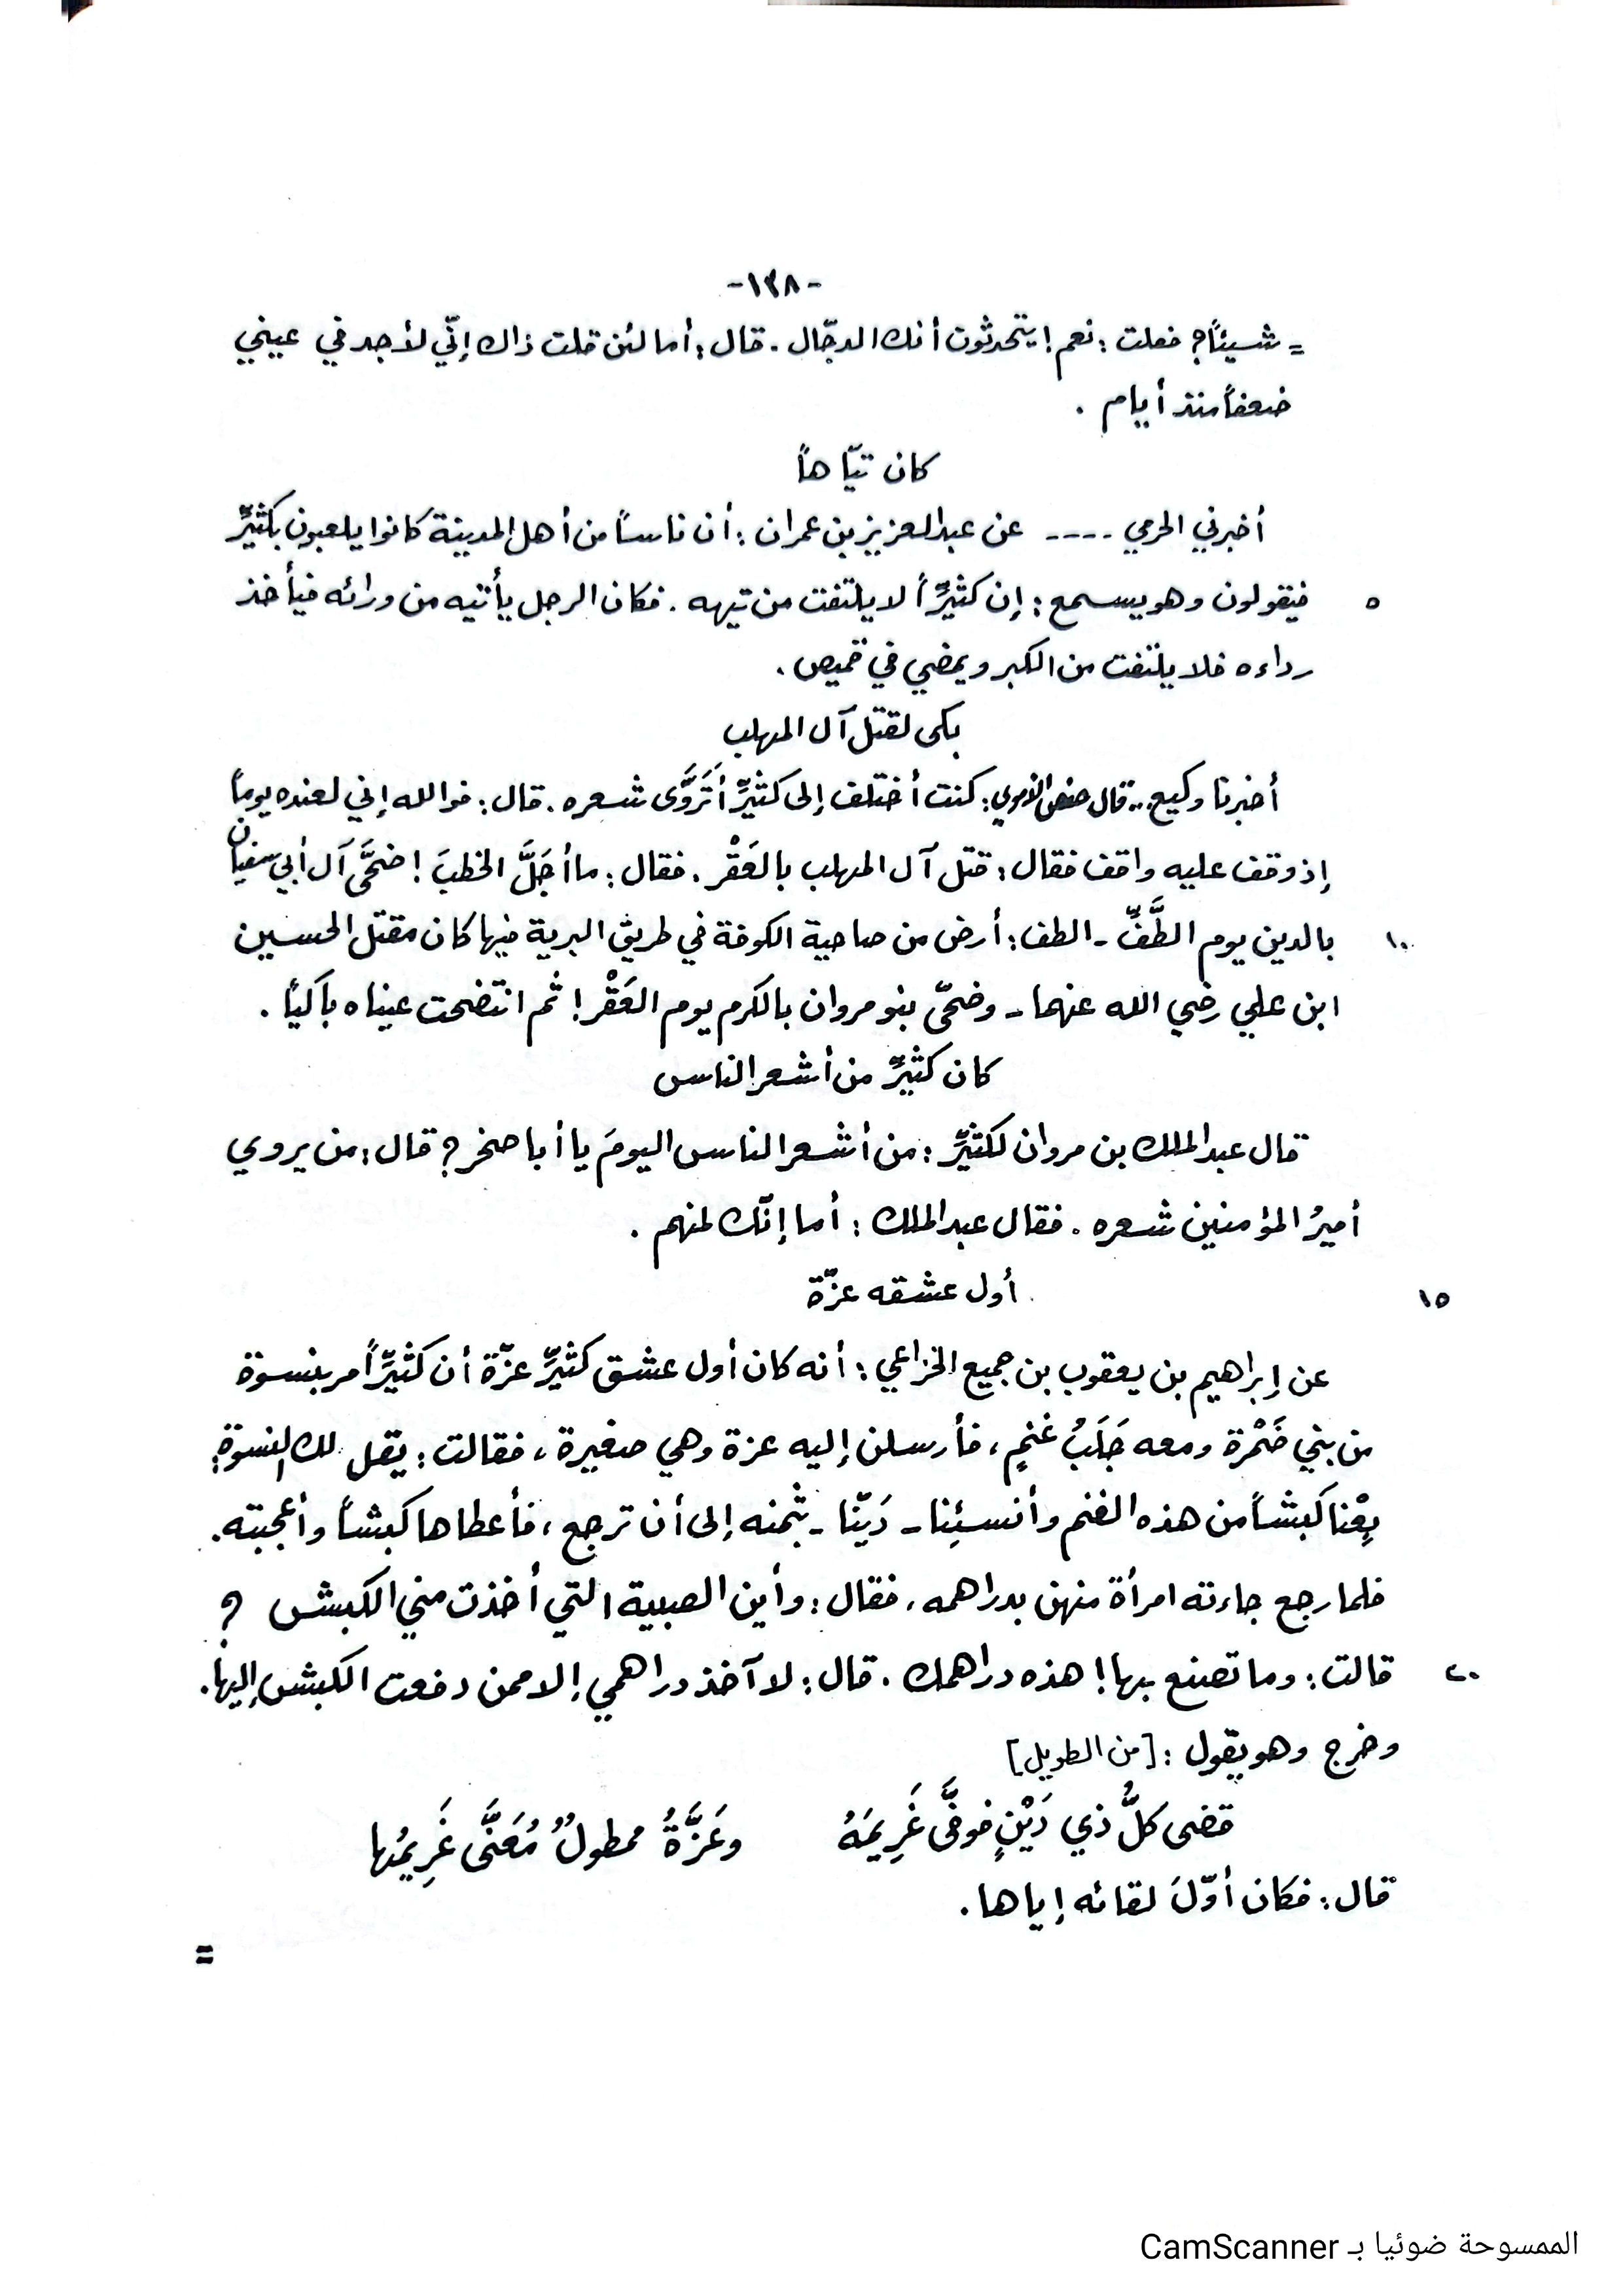 -١٣٨-
= شيئاً؟ فقلت : نعم ! يتحدثون أنك الدجّال . قال : أما لئن قلت ذاك إنّي لأجد في عيني
ضعفاً منذ أيام .
كان تيّاهاً
أخبرني الحرمي ---- عن عبدالعزيز بن عمران : أن ناساً من أهل المدينة كانوا يلعبون بكثيِّر
٥ فيقولون وهو يسمع : إن كثيِّراً لا يلتفت من تيهه . فكان الرجل يأتيه من ورائه فيأخذ
رداءه فلا يلتفت من الكبر ويمضي في قميص .
بكى لقتل آل المهلب
أخبرنا وكيع .. قال حفص الأموي : كنت أختلف إلى كثيِّر أَتَرَوَّى شعره . قال : فوالله إني لعنده يوماً
إذ وقف عليه واقف فقال : قتل آل المهلب بالعَقْر . فقال : ما أجَلَّ الخطبَ ! ضحَّى آل أبي سفيان
١٠ بالدين يوم الطَّفِّ - الطف : أرض من ضاحية الكوفة في طريق البرية فيها كان مقتل الحسين
ابن علي رضي الله عنهما - وضحّى بنو مروان بالكرم يوم العَقْر ! ثم انتضحت عيناه باكياً .
كان كثيِّر من أشعر الناس
قال عبدالملك بن مروان لكثيِّر : من أشعر الناس اليومَ يا أبا صخر ؟ قال : من يروي
أميرُ المؤمنين شعره . فقال عبدالملك : أما إنّك لمنهم .
١٥ أول عشقه عزّة
عن إبراهيم بن يعقوب بن جميع الخزاعي : أنه كان أول عشق كثيِّر عزّة أن كثيِّراً مر بنسوة
من بني ضَمْرة ومعه جَلَبُ غنمٍ ، فأرسلن إليه عزة وهي صغيرة ، فقالت : يقل لك النسوة :
بِعْنا كبشاً من هذه الغنم وأنسئِنا - دَيّنا - بثمنه إلى أن ترجع ، فأعطاها كبشاً وأعجبته .
فلما رجع جاءته امرأة منهن بدراهمه ، فقال : وأين الصبية التي أخذت مني الكبش ؟
٢٠ قالت : وما تصنع بها ! هذه دراهمك . قال : لا آخذ دراهمي إلا ممن دفعت الكبش إليها .
وخرج وهو يقول : [من الطويل]
قضى كلُّ ذي دَيْنٍ فوفَّى غَرِيمَهُ وعَزَّةُ ممطولٌ مُعَنَّى غَرِيمُها
قال : فكان أوّلَ لقائه إياها .
=
الممسوحة ضوئيا بـ CamScanner